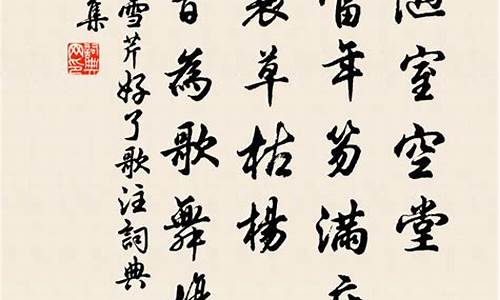 陋室空堂
當年笏滿床
衰草枯楊
曾為歌舞場
雪芹好了歌注詞典
集